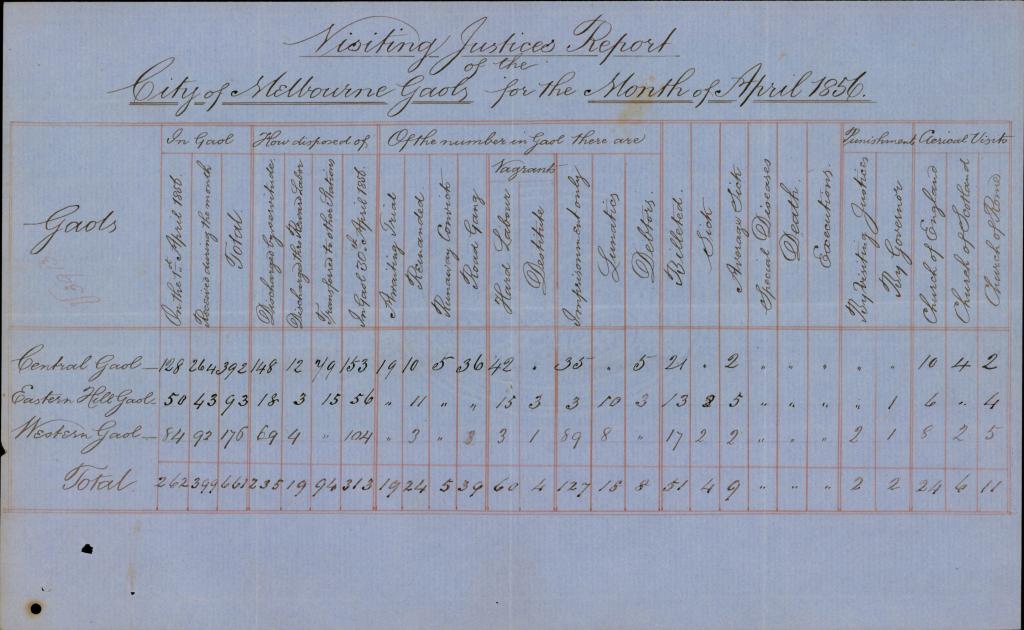 Visiting Justices Report
of the
City of Melbourne Gaols for the Month of April 1856.
Gaols
In Gaol
How disposed of
Of the number in Gaol there are
Punishments
Clerical Visits
Vagrants
On the 1st April 1856.
Received during the month
Total
Discharged by servitude
Discharged
Transfered to other Stations
In Gaol 30th April 1856.
Awaiting Trial
Remanded
Runaway Convicts
Road Gang
Hard Labour
Destitute
Imprisonment only
Lunatics
Debtors
Billeted
Sick
Average Sick
Special Diseases
Death
Executions
By Visiting Justices
By Governor
Church of England
Church of Scotland
Church of Rome
Central Gaol — 128 264 392 148 12 79 153 19 10 5 36 42 " 35 " 5 21 " 2 " " " " " 10 4 2
Eastern Hill Gaol 50 43 93 18 3 15 56 " 11 " " 15 3 3 10 3 13 2 5 " " " " 1 6 " 4
Western Gaol — 84 92 176 69 4 " 104 " 3 " 3 3 1 89 8 " 17 2 2 " " " 2 1 8 2 5
Total 262 399 661 235 19 94 313 19 24 5 39 60 4 127 18 8 51 4 9 " " " 2 2 24 6 11